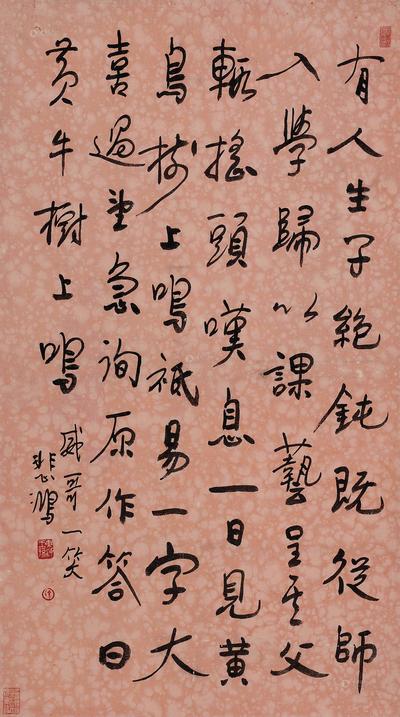 有人生子絶鈍既從師
入學歸以課藝呈其父
輒搖頭嘆息一日見黄
鳥樹上鳴祇易一字大
喜過望急詢原作答曰
黄牛樹上鳴
威哥一笑
悲鴻